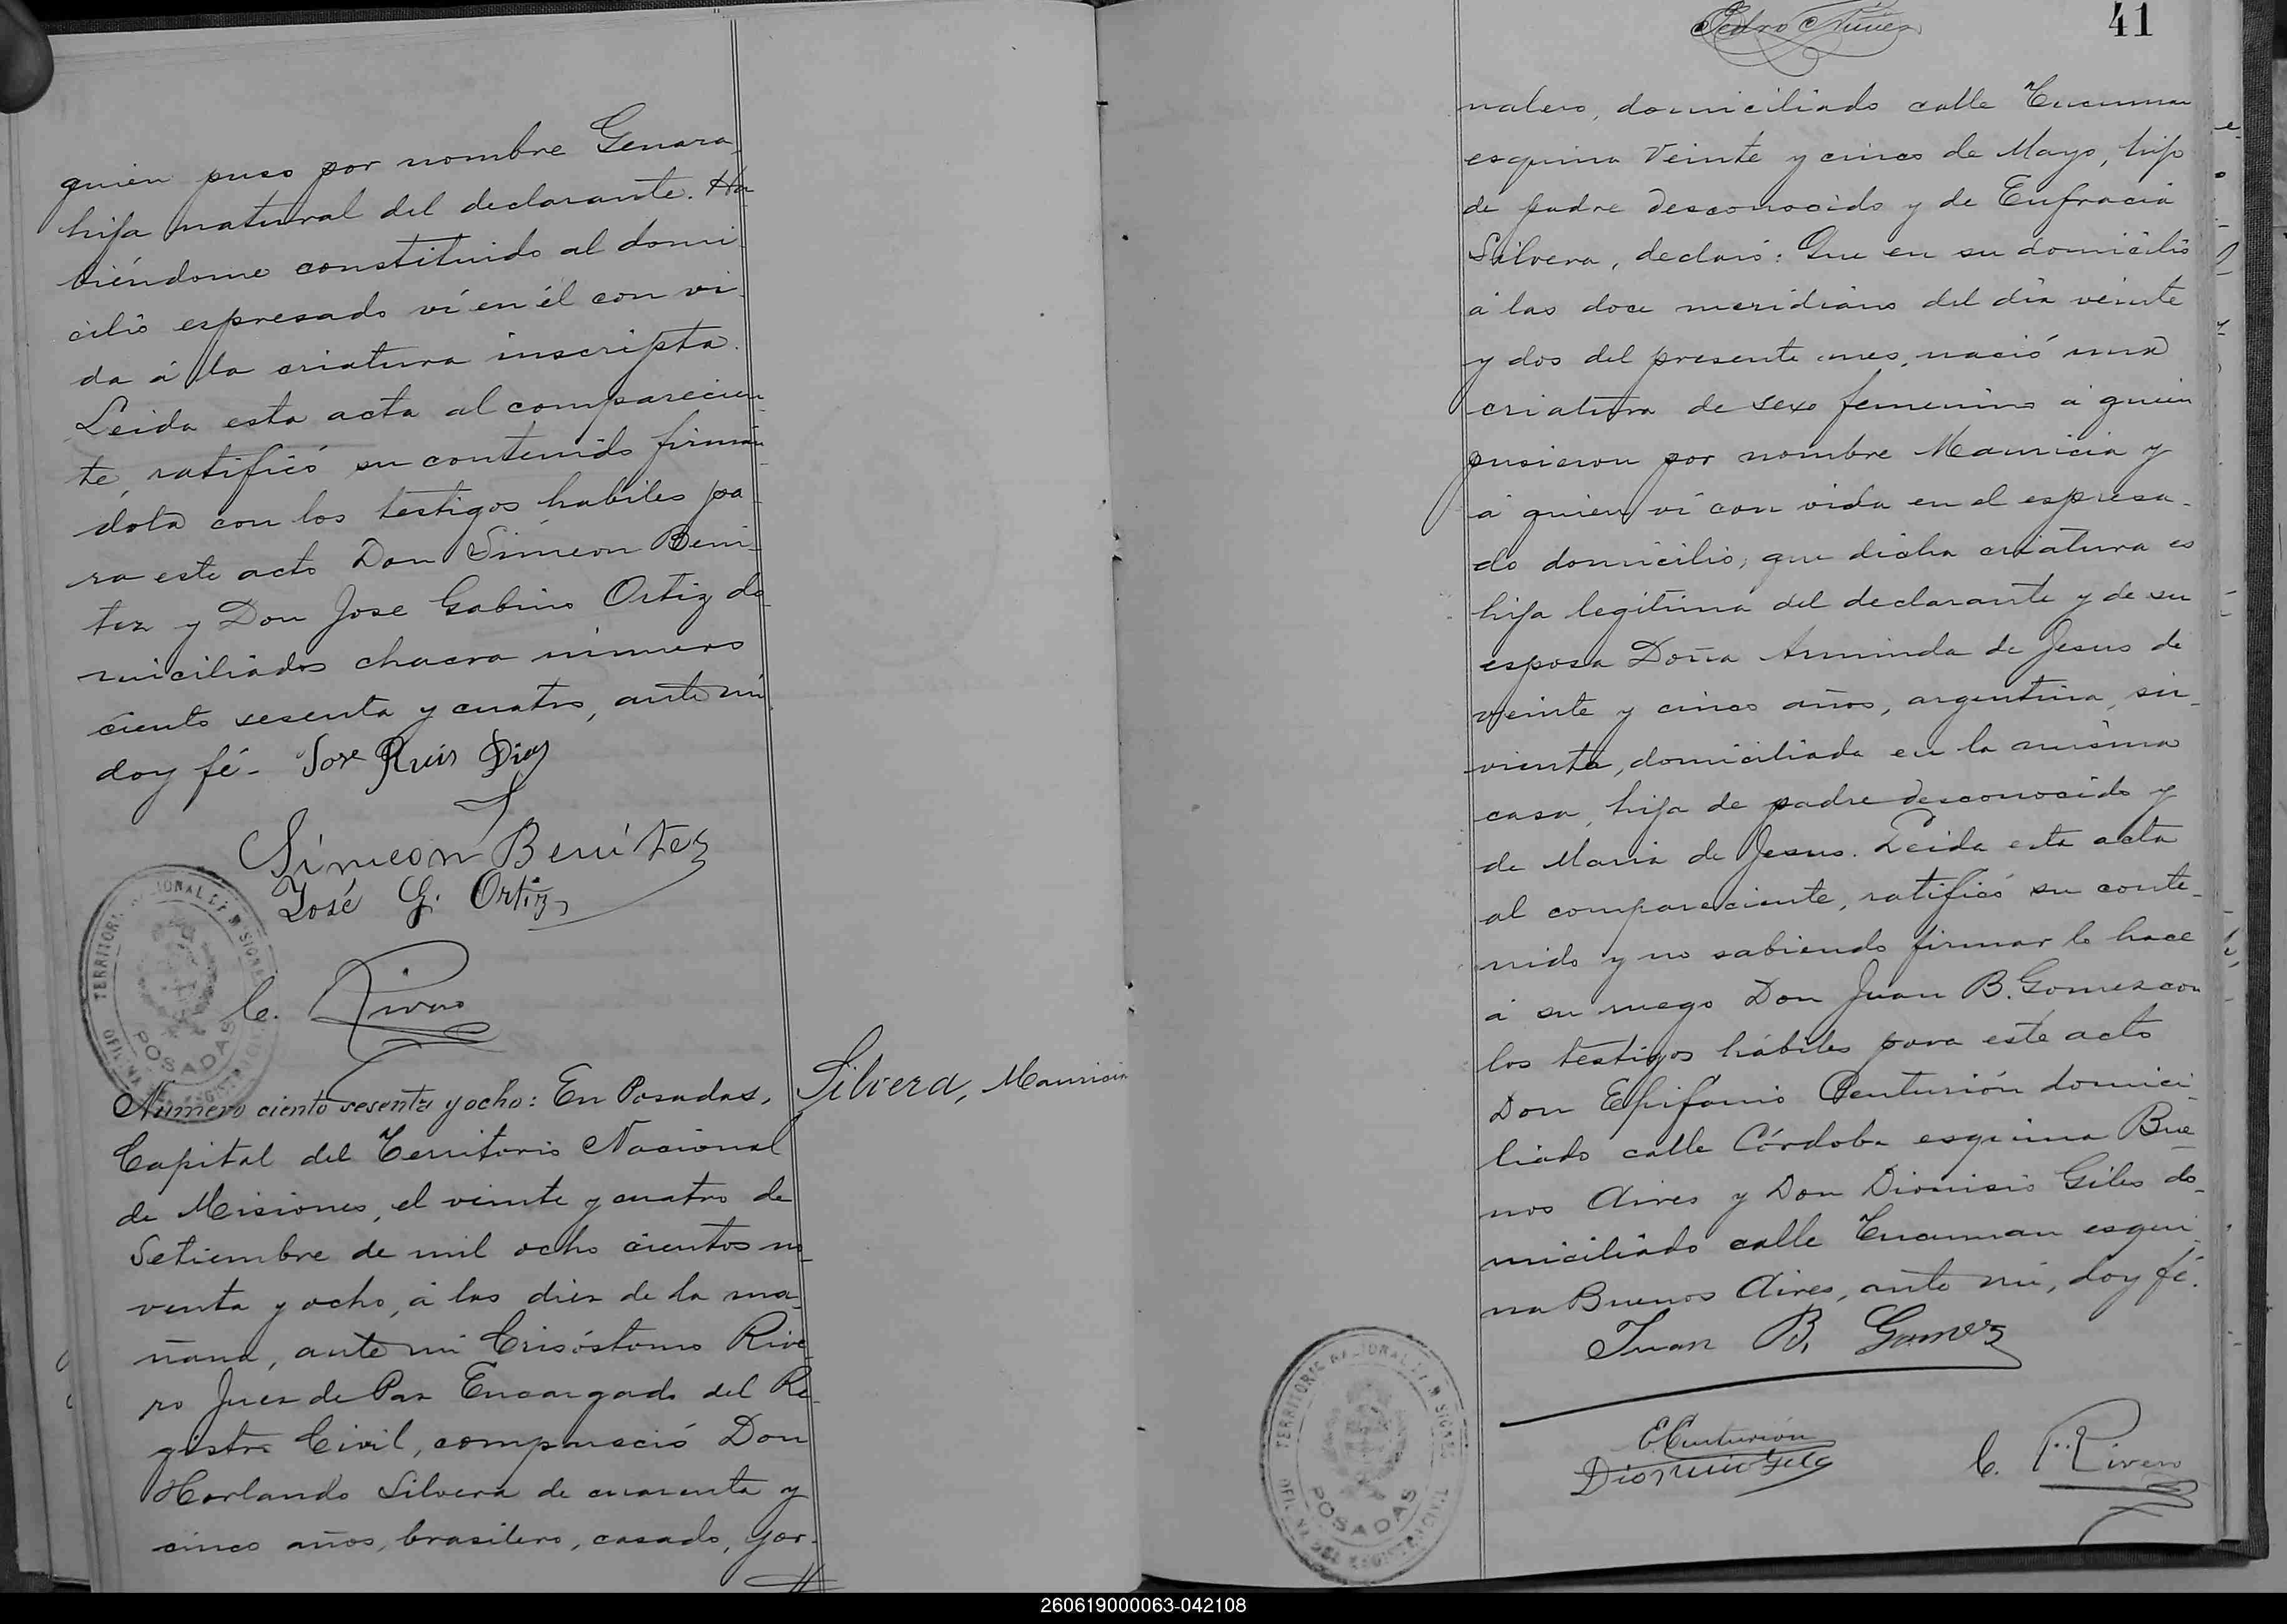 quien puso por nombre Genara
hija natural del declarante. Ha
biéndome constituido al domi
cilio espresado ví en él con vi
da á la criatura inscripta.
Leida esta acta al comparecien
te, ratificó su contenido firmán
dola con los testigos habiles pa
ra este acto Don Simeon Beni
tez y Don Jose Gabino Ortiz do
miciliados chacra número
ciento sesenta y cuatro, ante mí
doy fé- Jose Ruis Dias
Simeon Benítez
José G. Ortiz
C. Rivero
TERRITORIO NACIONAL DE MISIONES
OFICINA DEL REGISTRO CIVIL
POSADAS
Silvera, Mauricia
Número ciento sesenta y ocho: En Posadas,
Capital del Territorio Nacional
de Misiones, el veinte y cuatro de
Setiembre de mil ocho cientos no
venta y ocho, á las diez de la ma
ñana, ante mi Crisóstomo Rive
ro Juez de Paz Encargado del Re
gistro Civil, compareció Don
Horlando Silvera de cuarenta y
cinco años, brasilero, casado, jor-
Pedro Nuñez
41
nalero, domiciliado calle Tucuman
esquina Veinte y cinco de Mayo, hijo
de padre desconocido y de Eufracia
Silvera, declaró: Que en su domicilio
á las doce meridiano del dia veinte
y dos del presente mes, nació una
criatura de sexo femenino á quien
pusieron por nombre Mauricia y
á quien ví con vida en el espresa-
do domicilio; que dicha criatura es
hija legítima del declarante y de su
esposa Doña Arminda de Jesus de
veinte y cinco años, argentina, sir-
vienta, domiciliada en la misma
casa, hija de padre desconocido y
de Maria de Jesus. Leida esta acta
al compareciente, ratificó su conte-
nido y no sabiendo firmar lo hace
á su ruego Don Juan B. Gomez con
los testigos hábiles para este acto
Don Epifanio Centurión domici
liado calle Córdoba esquina Bue
nos Aires y Don Dionisio Giles do-
miciliado calle Tucuman esqui
na Buenos Aires, ante mí, doy fé.
Juan B. Gomez
E. Centurión
Dionicio Giles
C. Rivero
TERRITORIO NACIONAL DE MISIONES
OFICINA DEL REGISTRO CIVIL
POSADAS
260619000063-042108